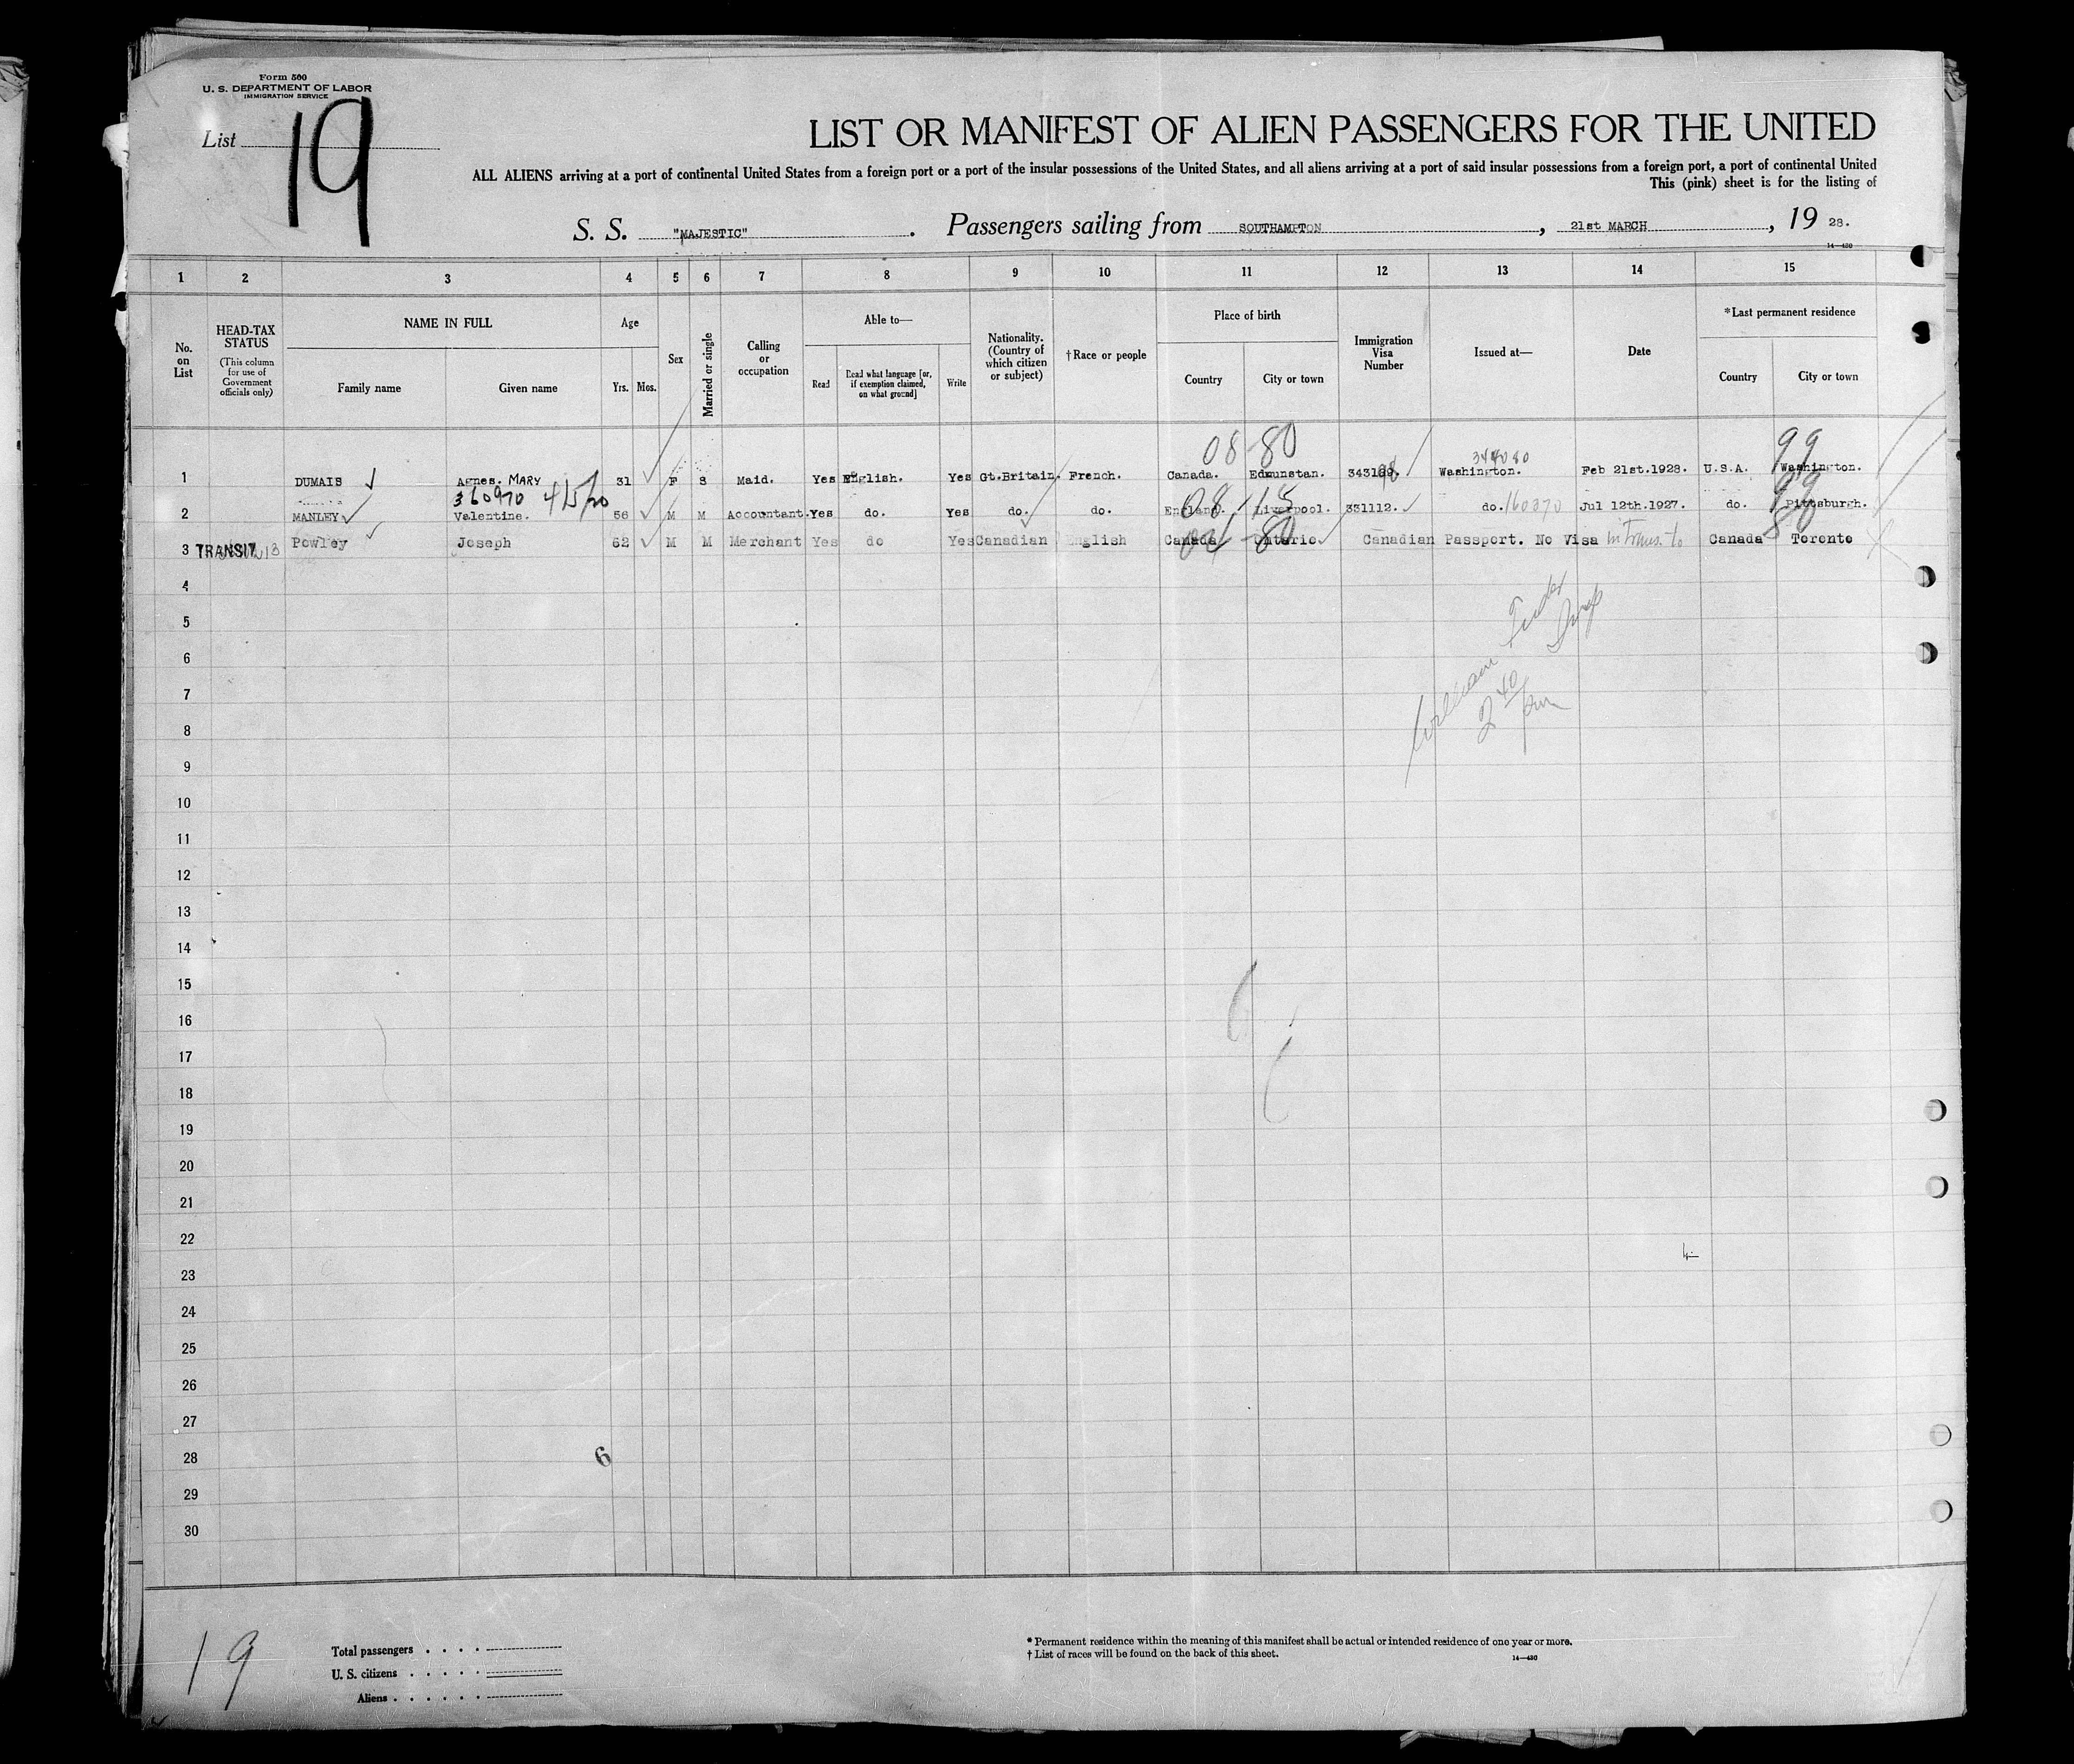 Form 500
U. S. DEPARTMENT OF LABOR
IMMIGRATION SERVICE
List 19
LIST OR MANIFEST OF ALIEN PASSENGERS FOR THE UNITED
ALL ALIENS arriving at a port of continental United States from a foreign port or a port of the insular possessions of the United States, and all aliens arriving at a port of said insular possessions from a foreign port, a port of continental United
This (pink) sheet is for the listing of
S. S. "MAJESTIC" . Passengers sailing from SOUTHAMPTON , 21st MARCH , 19 28.
14—430
1 2 3 4 5 6 7 8 9 10 11 12 13 14 15
No. on List
HEAD-TAX STATUS
(This column for use of Government officials only)
NAME IN FULL
Family name
Given name
Age
Yrs.
Mos.
Sex
Married or single
Calling or occupation
Able to—
Read
Read what language [or, if exemption claimed, on what ground]
Write
Nationality. (Country of which citizen or subject)
†Race or people
Place of birth
Country
City or town
Immigration Visa Number
Issued at—
Date
*Last permanent residence
Country
City or town
08 80 344080 99
1 DUMAIS Agnes. MARY 31 F S Maid. Yes English. Yes Gt.Britain. French. Canada. Edmunstan. Washington. Feb 21st.1928. U.S.A. Washington.
360970 4/5/20
08 15 99
2 MANLEY Valentine. 56 M M Accountant. Yes do. Yes do. do. England. Liverpool. 331112. do. 160370 Jul 12th.1927. do. Pittsburgh.
80
3 TRANSIT Powley Joseph 62 M M Merchant Yes do Yes Canadian English Canada Ontario Canadian Passport. No Visa in Trans. to Canada Toronto
4
5
6
7
8
9
10
11
12
13
14
15
16
17
18
19
20
21
22
23
24
25
26
27
28
29
30
William
2 40
pm
6
19
Total passengers . . . .
U. S. citizens . . . . .
Aliens . . . . . .
* Permanent residence within the meaning of this manifest shall be actual or intended residence of one year or more.
† List of races will be found on the back of this sheet.
14—430